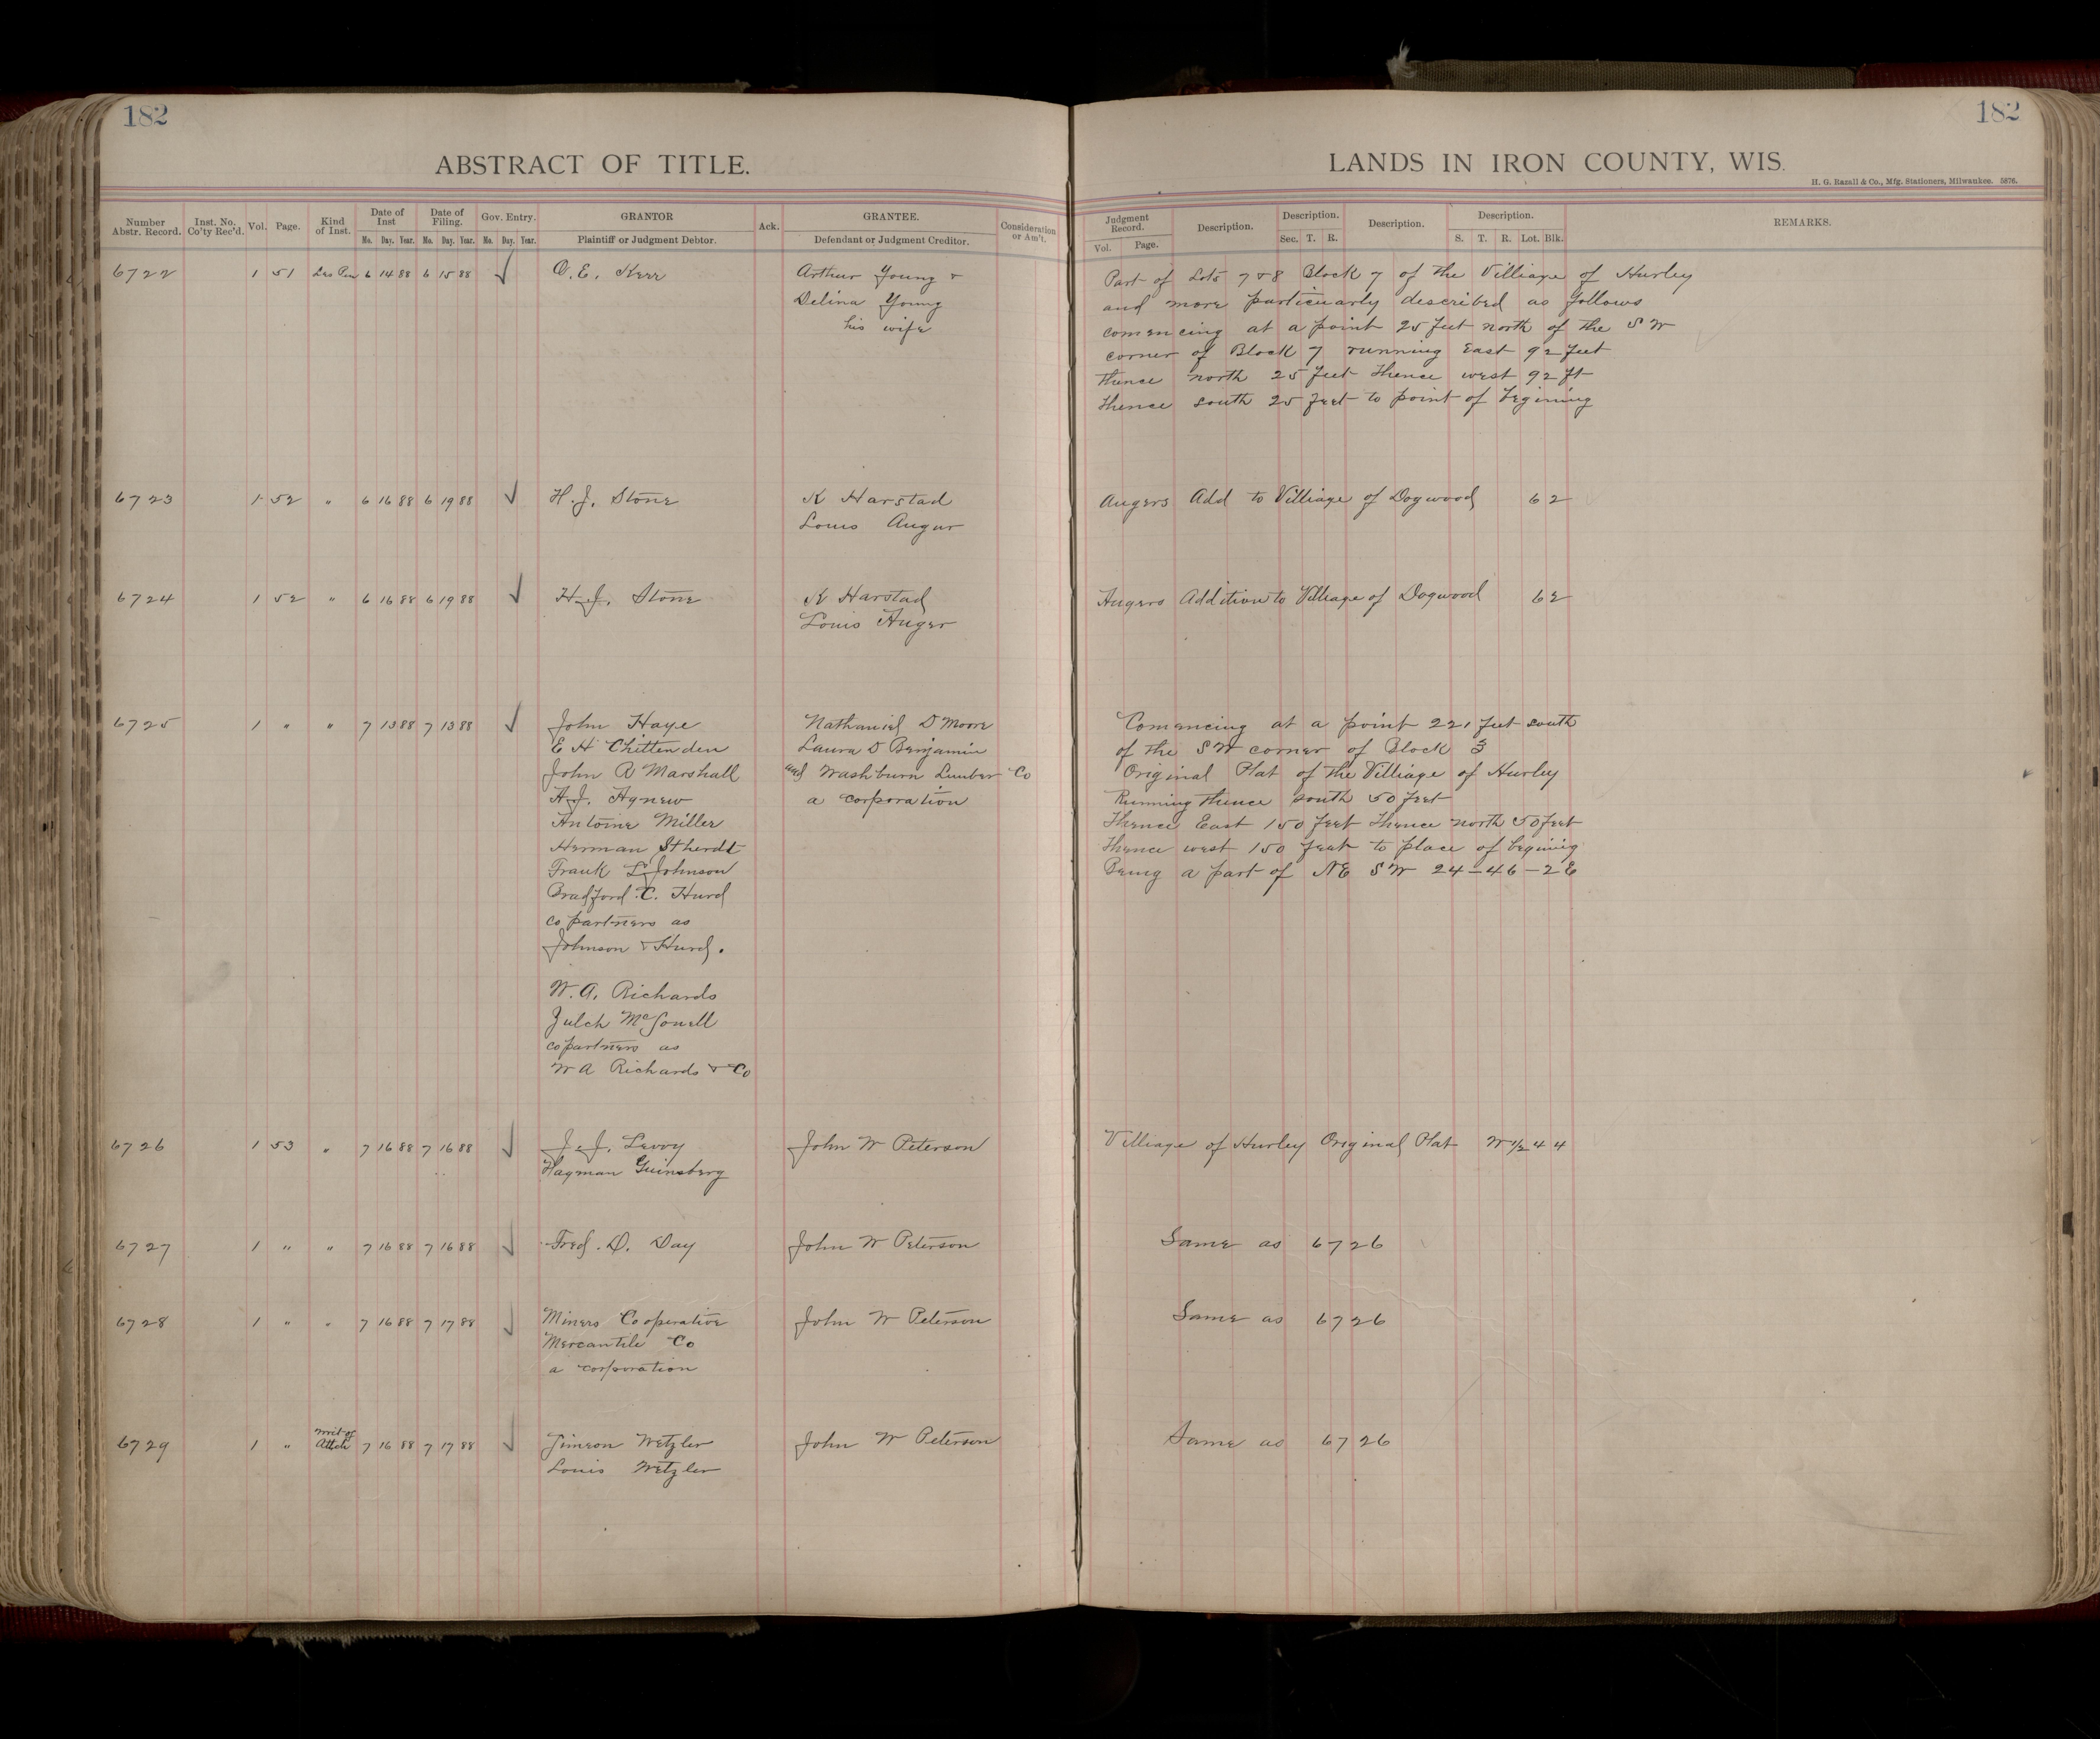 182
182
ABSTRACT OF TITLE.
LANDS IN IRON COUNTY, WIS.
H. G. Razall & Co., Mfg. Stationers, Milwaukee. 5876.
Number Abstr. Record. Inst. No. Co'ty Rec'd. Vol. Page. Kind of Inst. Date of Inst Mo. Day. Year. Date of Filing. Mo. Day. Year. Gov. Entry. Mo. Day. Year. GRANTOR Plaintiff or Judgment Debtor. Ack. GRANTEE. Defendant or Judgment Creditor. Consideration or Am't.
Judgment Record. Vol. Page. Description. Description. Sec. T. R. Description. Description. S. T. R. Lot. Blk. REMARKS.
6722 1 51 Lis Pen 6 14 88 6 15 88 ✓ O. E. Kerr Arthur Young & Part of Lots 7 & 8 Block 7 of the Villiage of Hurley
Delina Young and more particuarly described as follows
his wife comencing at a point 25 feet north of the S W
corner of Block 7 running East 92 feet
thence north 25 feet thence west 92 ft
thence south 25 feet to point of begining
6723 1 52 " 6 16 88 6 19 88 ✓ H. J. Stone K Harstad Augers Add to Villiage of Dogwood 6 2
Louis Augur
6724 1 52 " 6 16 88 6 19 88 ✓ H. J. Stone K Harstad Augers Addition to Villiage of Dogwood 6 2
Louis Auger
6725 1 " " 7 13 88 7 13 88 ✓ John Haye Nathaniel D Moore Comencing at a point 221 feet south
E H Chittenden Laura D Benjamin of the S W corner of Block 3
John R Marshall and Washburn Lumber Co Original Plat of the Villiage of Hurley
H. J. Agnew a corporation Running thence south 50 feet
Antoine Miller Thence East 150 feet thence north 50 feet
Herman thence west 150 feet to place of begining
Frank L Johnson Being a part of NE S W 24-46-2 E
Bradford C. Hurd
co partners as
Johnson & Hurd.
W. A. Richards
copartners as
W A Richards & Co
6726 1 53 " 7 16 88 7 16 88 ✓ J. J. Levoy John W Peterson Villiage of Hurley Original Plat W 1/2 4 4
Hagman Guinsberg
6727 1 " " 7 16 88 7 16 88 ✓ Fred. D. Day John W Peterson Same as 6726
6728 1 " " 7 16 88 7 17 88 ✓ Miners Cooperative John W Peterson Same as 6726
Mercantile Co
a corporation
6729 1 " Writ of Attch 7 16 88 7 17 88 ✓ Simeon Wetzler John W Peterson Same as 6726
Louis Wetzler